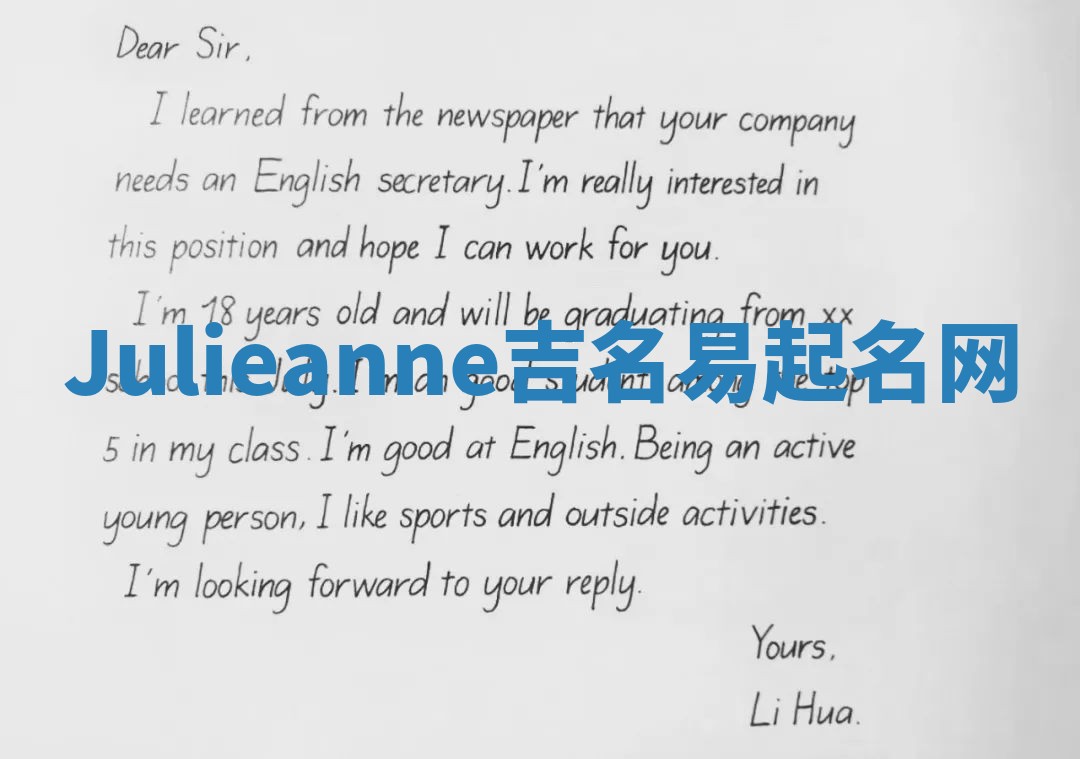 Dear Sir,
I learned from the newspaper that your company
needs an English secretary. I'm really interested in
this position and hope I can work for you.
I'm 18 years old and will be graduating from xx
Julieanne吉名易起名网
this July. I'm an good student among the top
5 in my class. I'm good at English. Being an active
young person, I like sports and outside activities.
I'm looking forward to your reply.
Yours,
Li Hua.